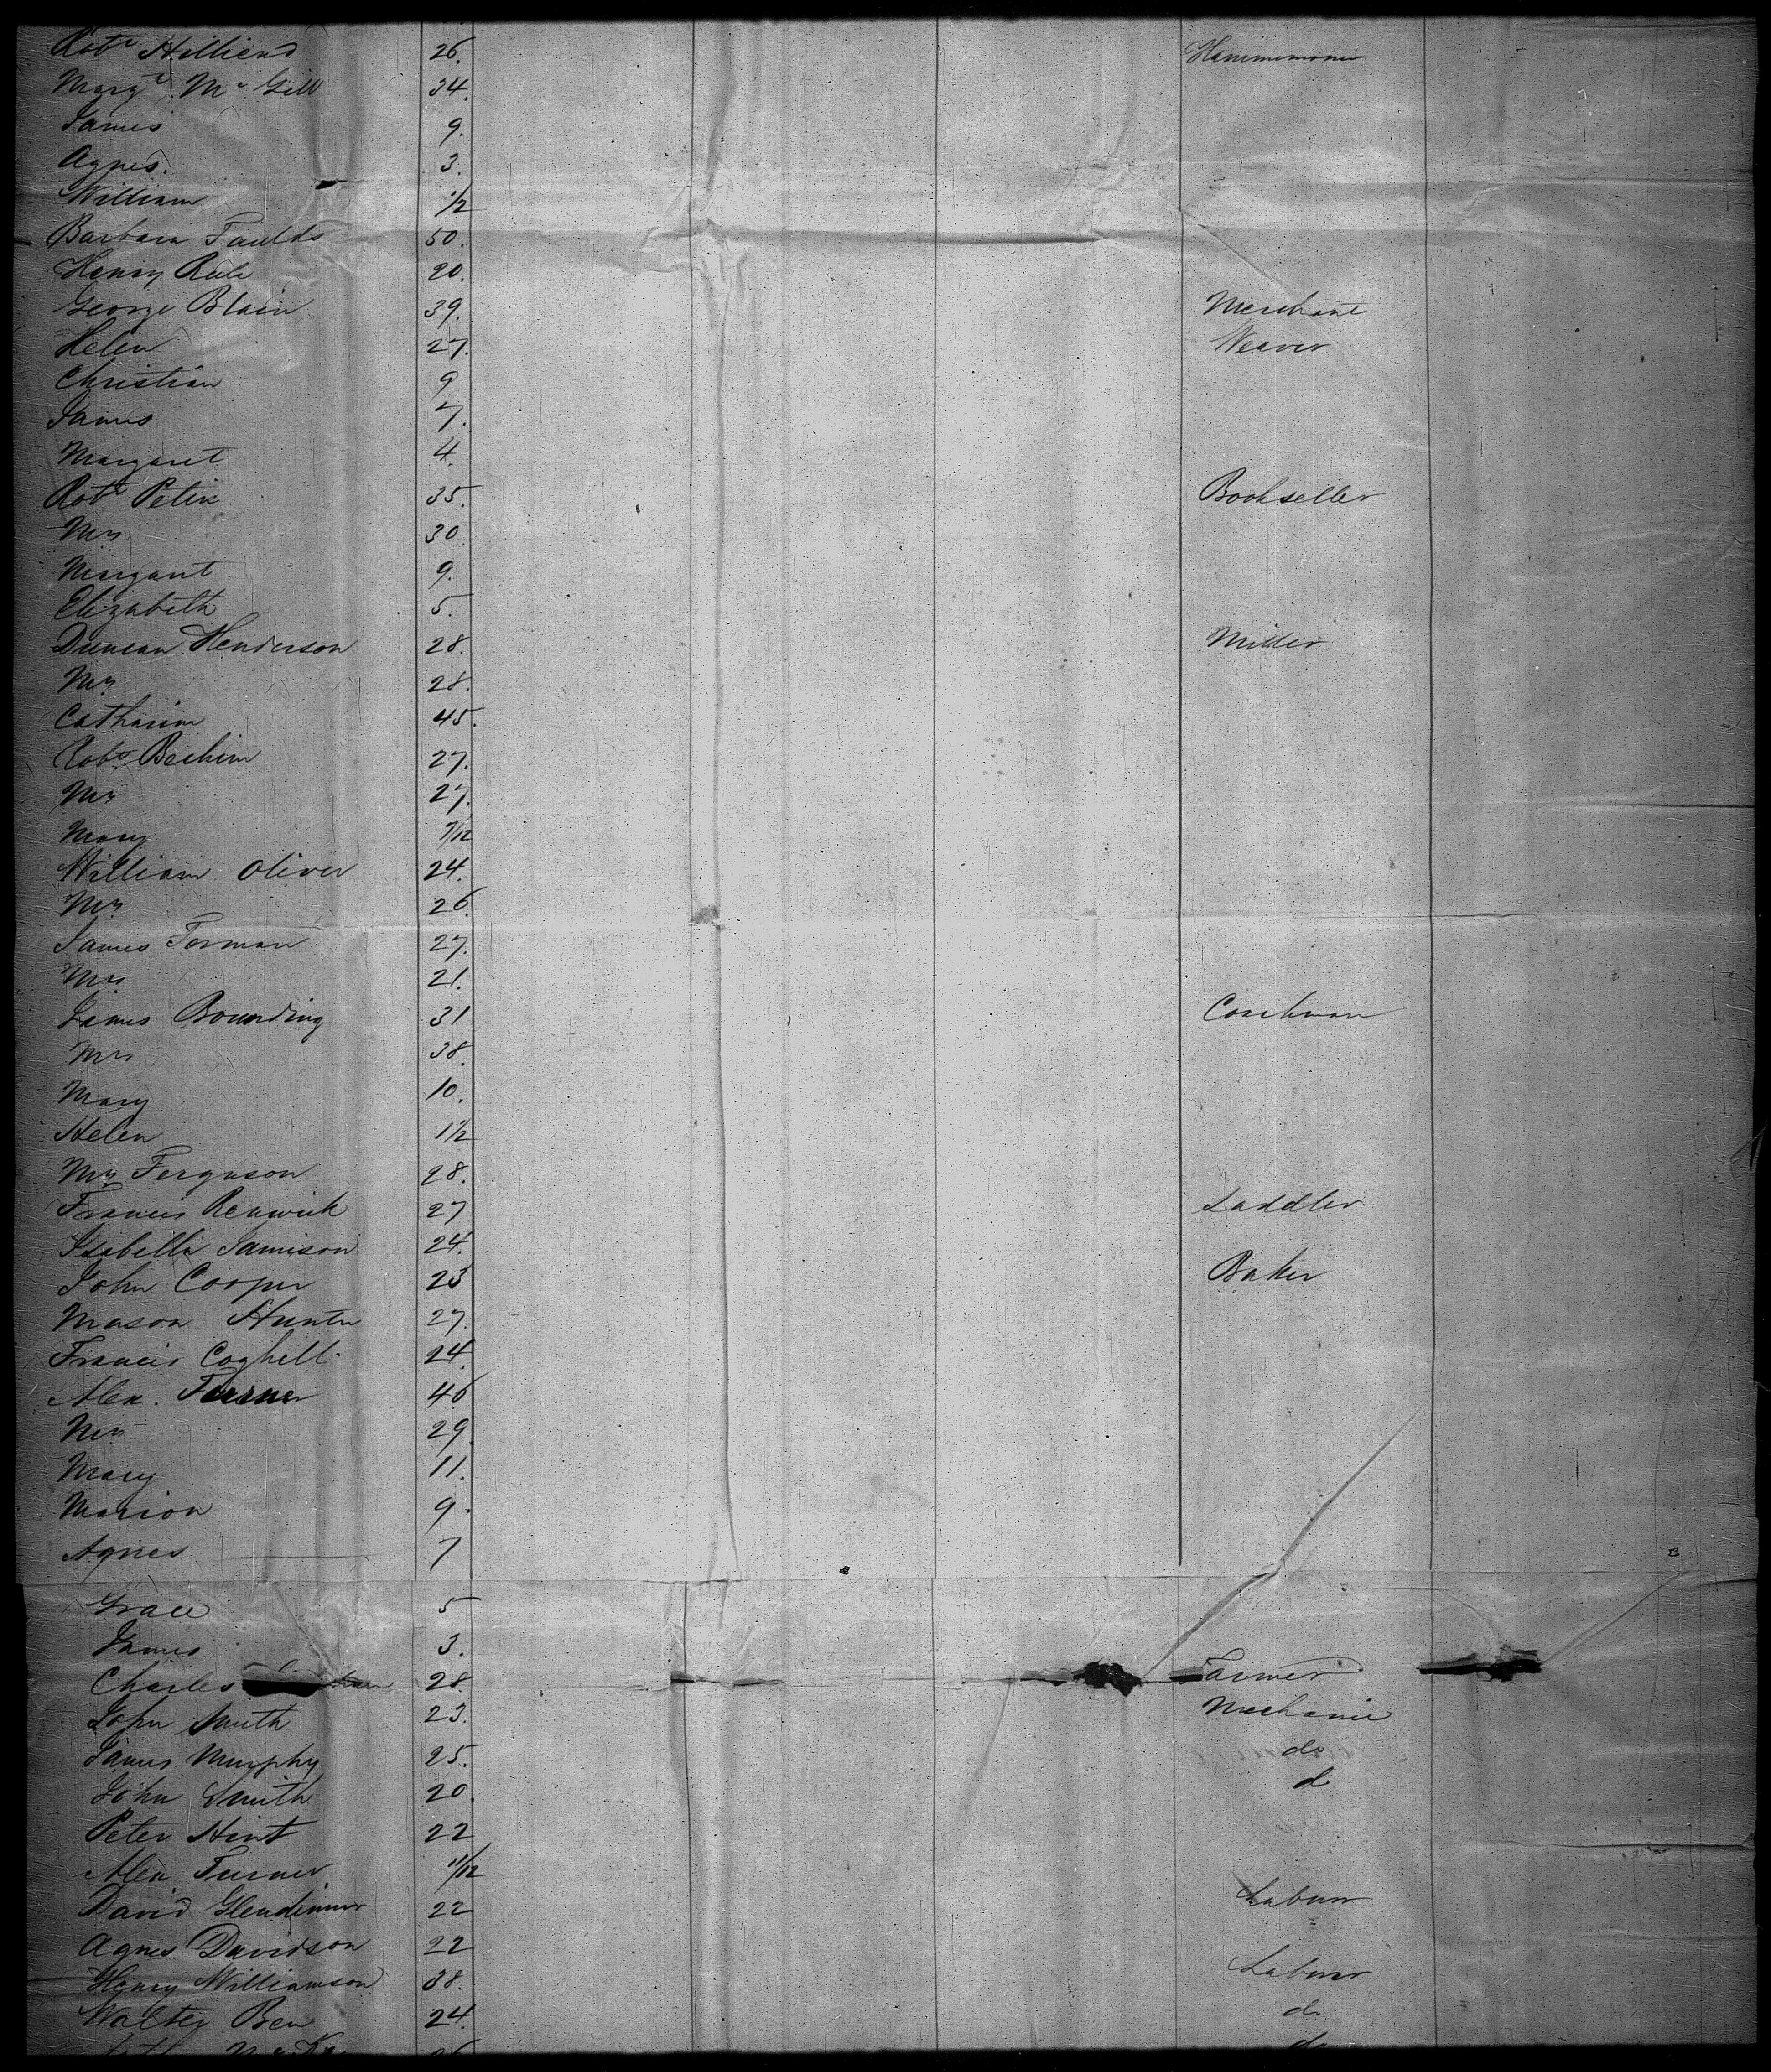 Robt Hilliend 26. Hammerman
Margt McGill 34.
James 9.
Agnes. 3.
William 1/2
Barbara Faulds 50.
Henry Rule 20.
George Blain 39. Merchant
Helen 27. Weaver
Christian 9
James 7.
Margaret 4.
Robt Petrie 35. Bookseller
Mrs 30
Margaret 9.
Elizabeth 5.
Duncan Henderson 28. Miller
Mrs 28.
Catharine 45.
Robt 27.
Mrs 27.
Mary 7/12
William Oliver 24.
Mrs 26.
James Forman 27.
Mrs 21.
James Bounding 31 Coachman
Mrs 38.
Mary 10.
Helen 1 1/2
Mrs Ferguson 28.
Francis Renwick 27 Saddler
Isabella Jamison 24.
John Cooper 23 Baker
Mason Hunter 27.
Francis Coghill 24.
Alex. Turner 46
Mrs 29
Mary 11.
Marion 9.
Agnes 7
Grace 5
James 3.
Charles 28. Farmer
John Smith 23. Mechanic
James Murphy 25. do
John Smith 20. d
Peter Hint 22
Alex Turner 11/12
David Glendinner 22 Labour
Agnes Davidson 22
Henry Williamson 38. Labour
Walter Ben 24. do
26 do